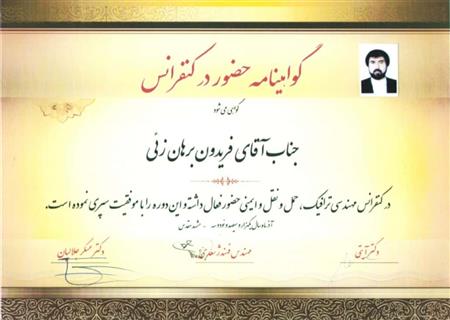 گواهینامه حضور در کنفرانس
گواهی می شود
جناب آقای فریدون برهان زئی
در کنفرانس مهندسی ترافیک، حمل و نقل و ایمنی حضور فعال داشته و این دوره را با موفقیت سپری نموده است.
آذر ماه سال یکهزار و سیصد و نود و - مشهد مقدس
دکتر آیتی
مهندس
دکتر عسکر جلالیان